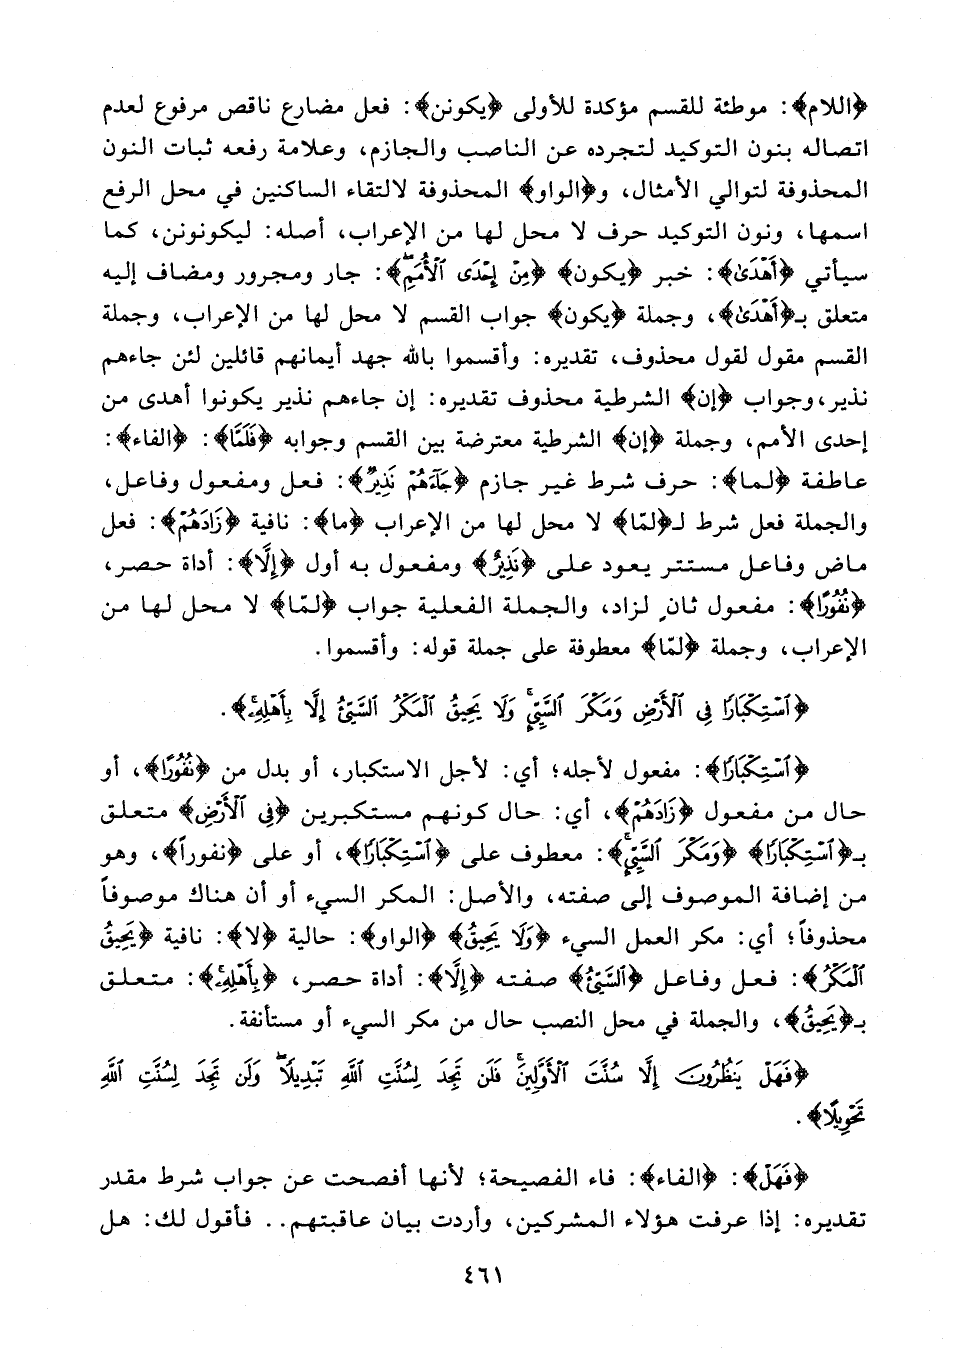 ﴿اللام﴾: موطئة للقسم مؤكدة للأولى ﴿يكونن﴾: فعل مضارع ناقص مرفوع لعدم
اتصاله بنون التوكيد لتجرده عن الناصب والجازم، وعلامة رفعه ثبات النون
المحذوفة لتوالي الأمثال، و﴿الواو﴾ المحذوفة لالتقاء الساكنين في محل الرفع
اسمها، ونون التوكيد حرف لا محل لها من الإعراب، أصله: ليكونونن، كما
سيأتي ﴿أَهْدَىٰ﴾: خبر ﴿يكون﴾ ﴿مِنْ إِحْدَى ٱلْأُمَمِۖ﴾: جار ومجرور ومضاف إليه
متعلق بـ﴿أَهْدَىٰ﴾، وجملة ﴿يكون﴾ جواب القسم لا محل لها من الإعراب، وجملة
القسم مقول لقول محذوف، تقديره: وأقسموا بالله جهد أيمانهم قائلين لئن جاءهم
نذير، وجواب ﴿إن﴾ الشرطية محذوف تقديره: إن جاءهم نذير يكونوا أهدى من
إحدى الأمم، وجملة ﴿إن﴾ الشرطية معترضة بين القسم وجوابه ﴿فَلَمَّا﴾: ﴿الفاء﴾:
عاطفة ﴿لما﴾: حرف شرط غير جازم ﴿جَآءَهُمْ نَذِيرٌ﴾: فعل ومفعول وفاعل،
والجملة فعل شرط لـ﴿لمّا﴾ لا محل لها من الإعراب ﴿ما﴾: نافية ﴿زَادَهُمْ﴾: فعل
ماض وفاعل مستتر يعود على ﴿نَذِيرٌ﴾ ومفعول به أول ﴿إِلَّا﴾: أداة حصر،
﴿نُفُورًا﴾: مفعول ثانٍ لزاد، والجملة الفعلية جواب ﴿لمّا﴾ لا محل لها من
الإعراب، وجملة ﴿لمّا﴾ معطوفة على جملة قوله: وأقسموا.
﴿ٱسْتِكْبَارًا فِى ٱلْأَرْضِ وَمَكْرَ ٱلسَّيِّئِۚ وَلَا يَحِيقُ ٱلْمَكْرُ ٱلسَّيِّئُ إِلَّا بِأَهْلِهِۦۚ﴾.
﴿ٱسْتِكْبَارًا﴾: مفعول لأجله؛ أي: لأجل الاستكبار، أو بدل من ﴿نُفُورًا﴾، أو
حال من مفعول ﴿زَادَهُمْ﴾، أي: حال كونهم مستكبرين ﴿فِى ٱلْأَرْضِ﴾ متعلق
بـ﴿ٱسْتِكْبَارًا﴾ ﴿وَمَكْرَ ٱلسَّيِّئِۚ﴾: معطوف على ﴿ٱسْتِكْبَارًا﴾، أو على ﴿نفوراً﴾، وهو
من إضافة الموصوف إلى صفته، والأصل: المكر السيء أو أن هناك موصوفاً
محذوفاً؛ أي: مكر العمل السيء ﴿وَلَا يَحِيقُ﴾ ﴿الواو﴾: حالية ﴿لا﴾: نافية ﴿يَحِيقُ
ٱلْمَكْرُ﴾: فعل وفاعل ﴿ٱلسَّيِّئُ﴾ صفته ﴿إِلَّا﴾: أداة حصر، ﴿بِأَهْلِهِۦۚ﴾: متعلق
بـ﴿يَحِيقُ﴾، والجملة في محل النصب حال من مكر السيء أو مستأنفة.
﴿فَهَلْ يَنظُرُونَ إِلَّا سُنَّتَ ٱلْأَوَّلِينَۚ فَلَن تَجِدَ لِسُنَّتِ ٱللَّهِ تَبْدِيلًاۖ وَلَن تَجِدَ لِسُنَّتِ ٱللَّهِ
تَحْوِيلًا﴾.
﴿فَهَلْ﴾: ﴿الفاء﴾: فاء الفصيحة؛ لأنها أفصحت عن جواب شرط مقدر
تقديره: إذا عرفت هؤلاء المشركين، وأردت بيان عاقبتهم.. فأقول لك: هل
٤٦١